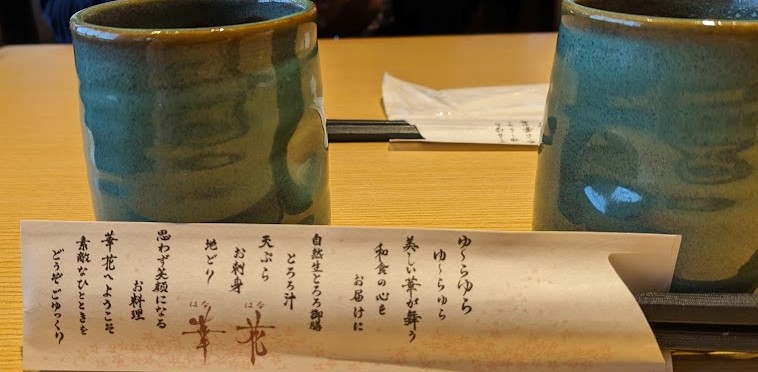 ゆ〜らゆら
ゆ〜らゆら
美しい華が舞う
和食の心を
お届けに
自然生とろろ御膳
とろろ汁
天ぷら
お刺身
地どり
思わず笑顔になる
お料理
華花へようこそ
素敵なひとときを
どうぞごゆっくり
はな
花
はな
華